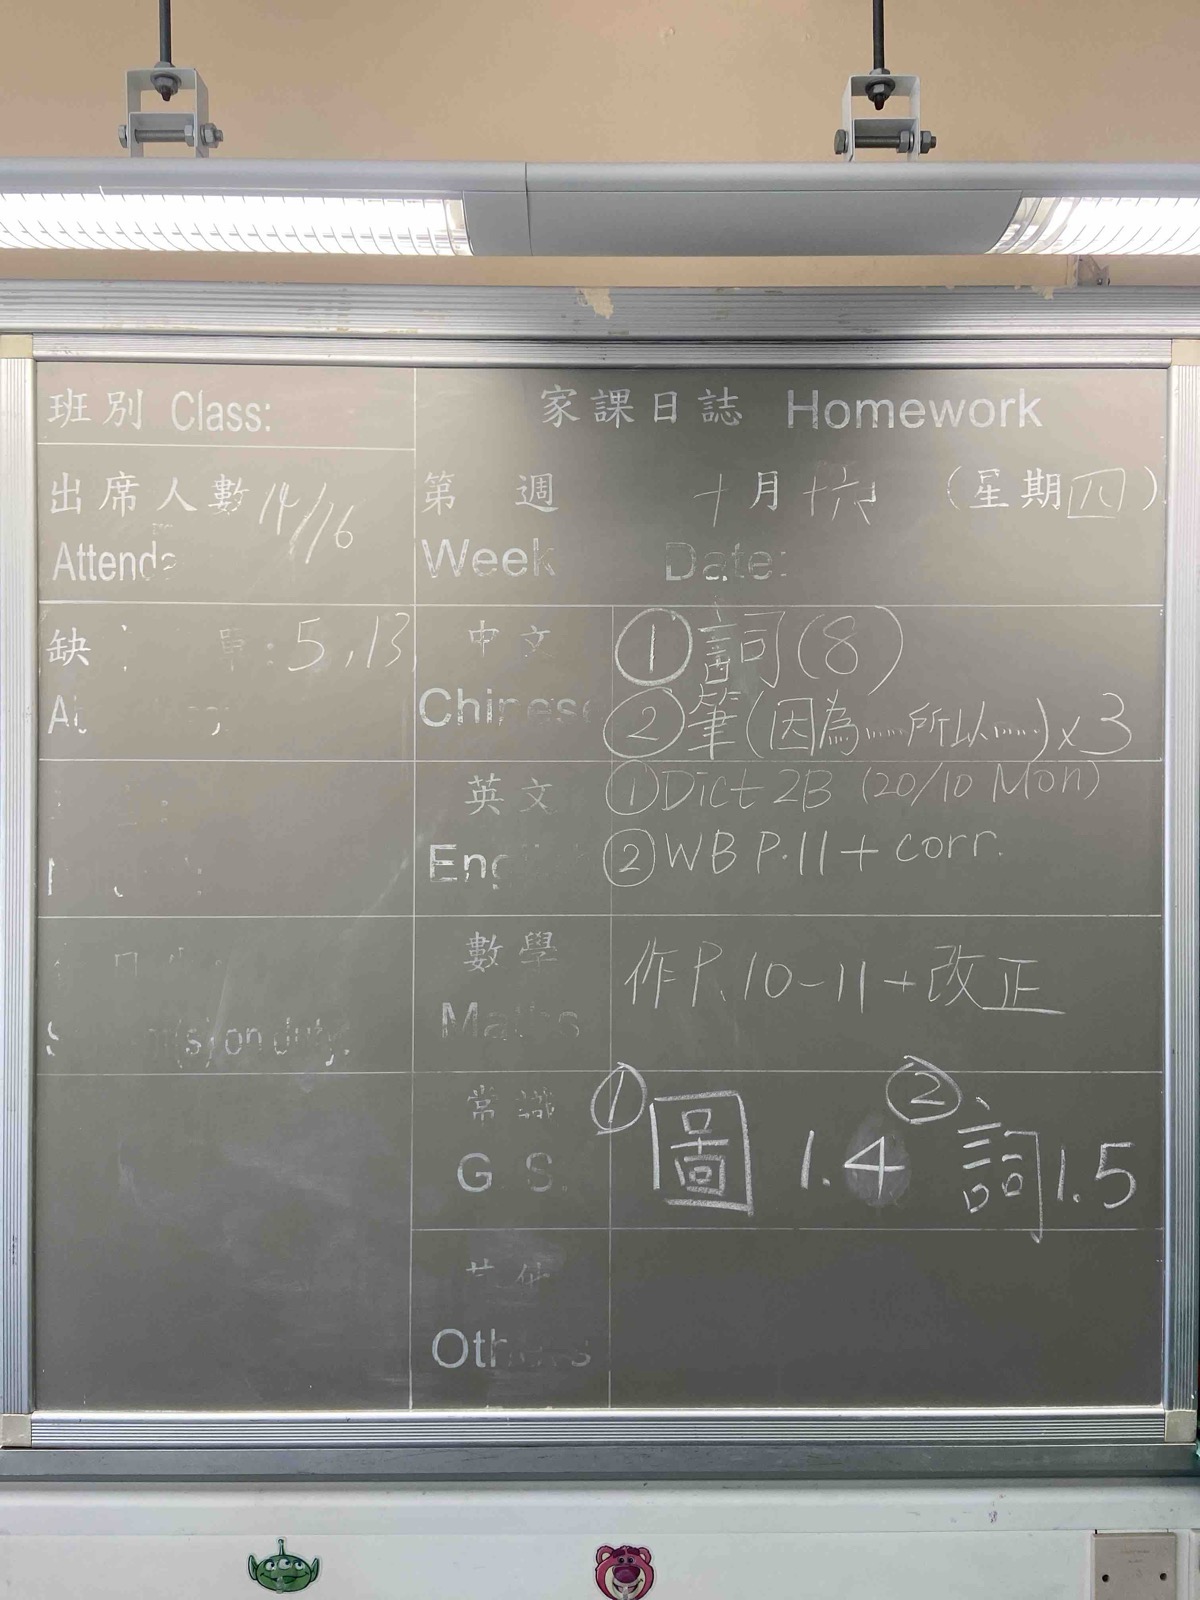 班別 Class:
家課日誌 Homework
出席人數 14/16
第 週 十月十六日 (星期四)
Week Date:
缺 : 5,13
中文
Chinese
①詞(8)
②筆(因為……所以……)x3
英文
①Dict 2B (20/10 Mon)
②WB P.11 + corr.
數學
Maths
作P.10-11+改正
常識
G.S.
①圖 1.4 ②詞1.5
(s) on duty:
其他
Others